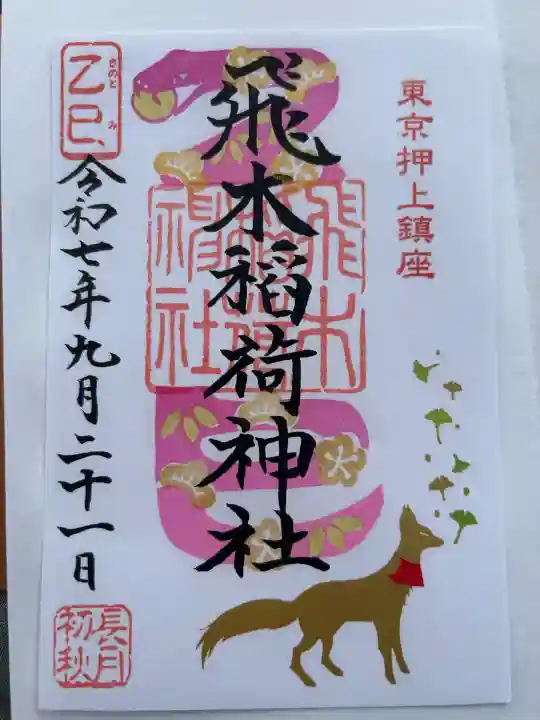 東京押上鎮座
飛木稲荷神社
飛木稲荷神社
乙巳
きのと み
令和七年九月二十一日
長月
初秋